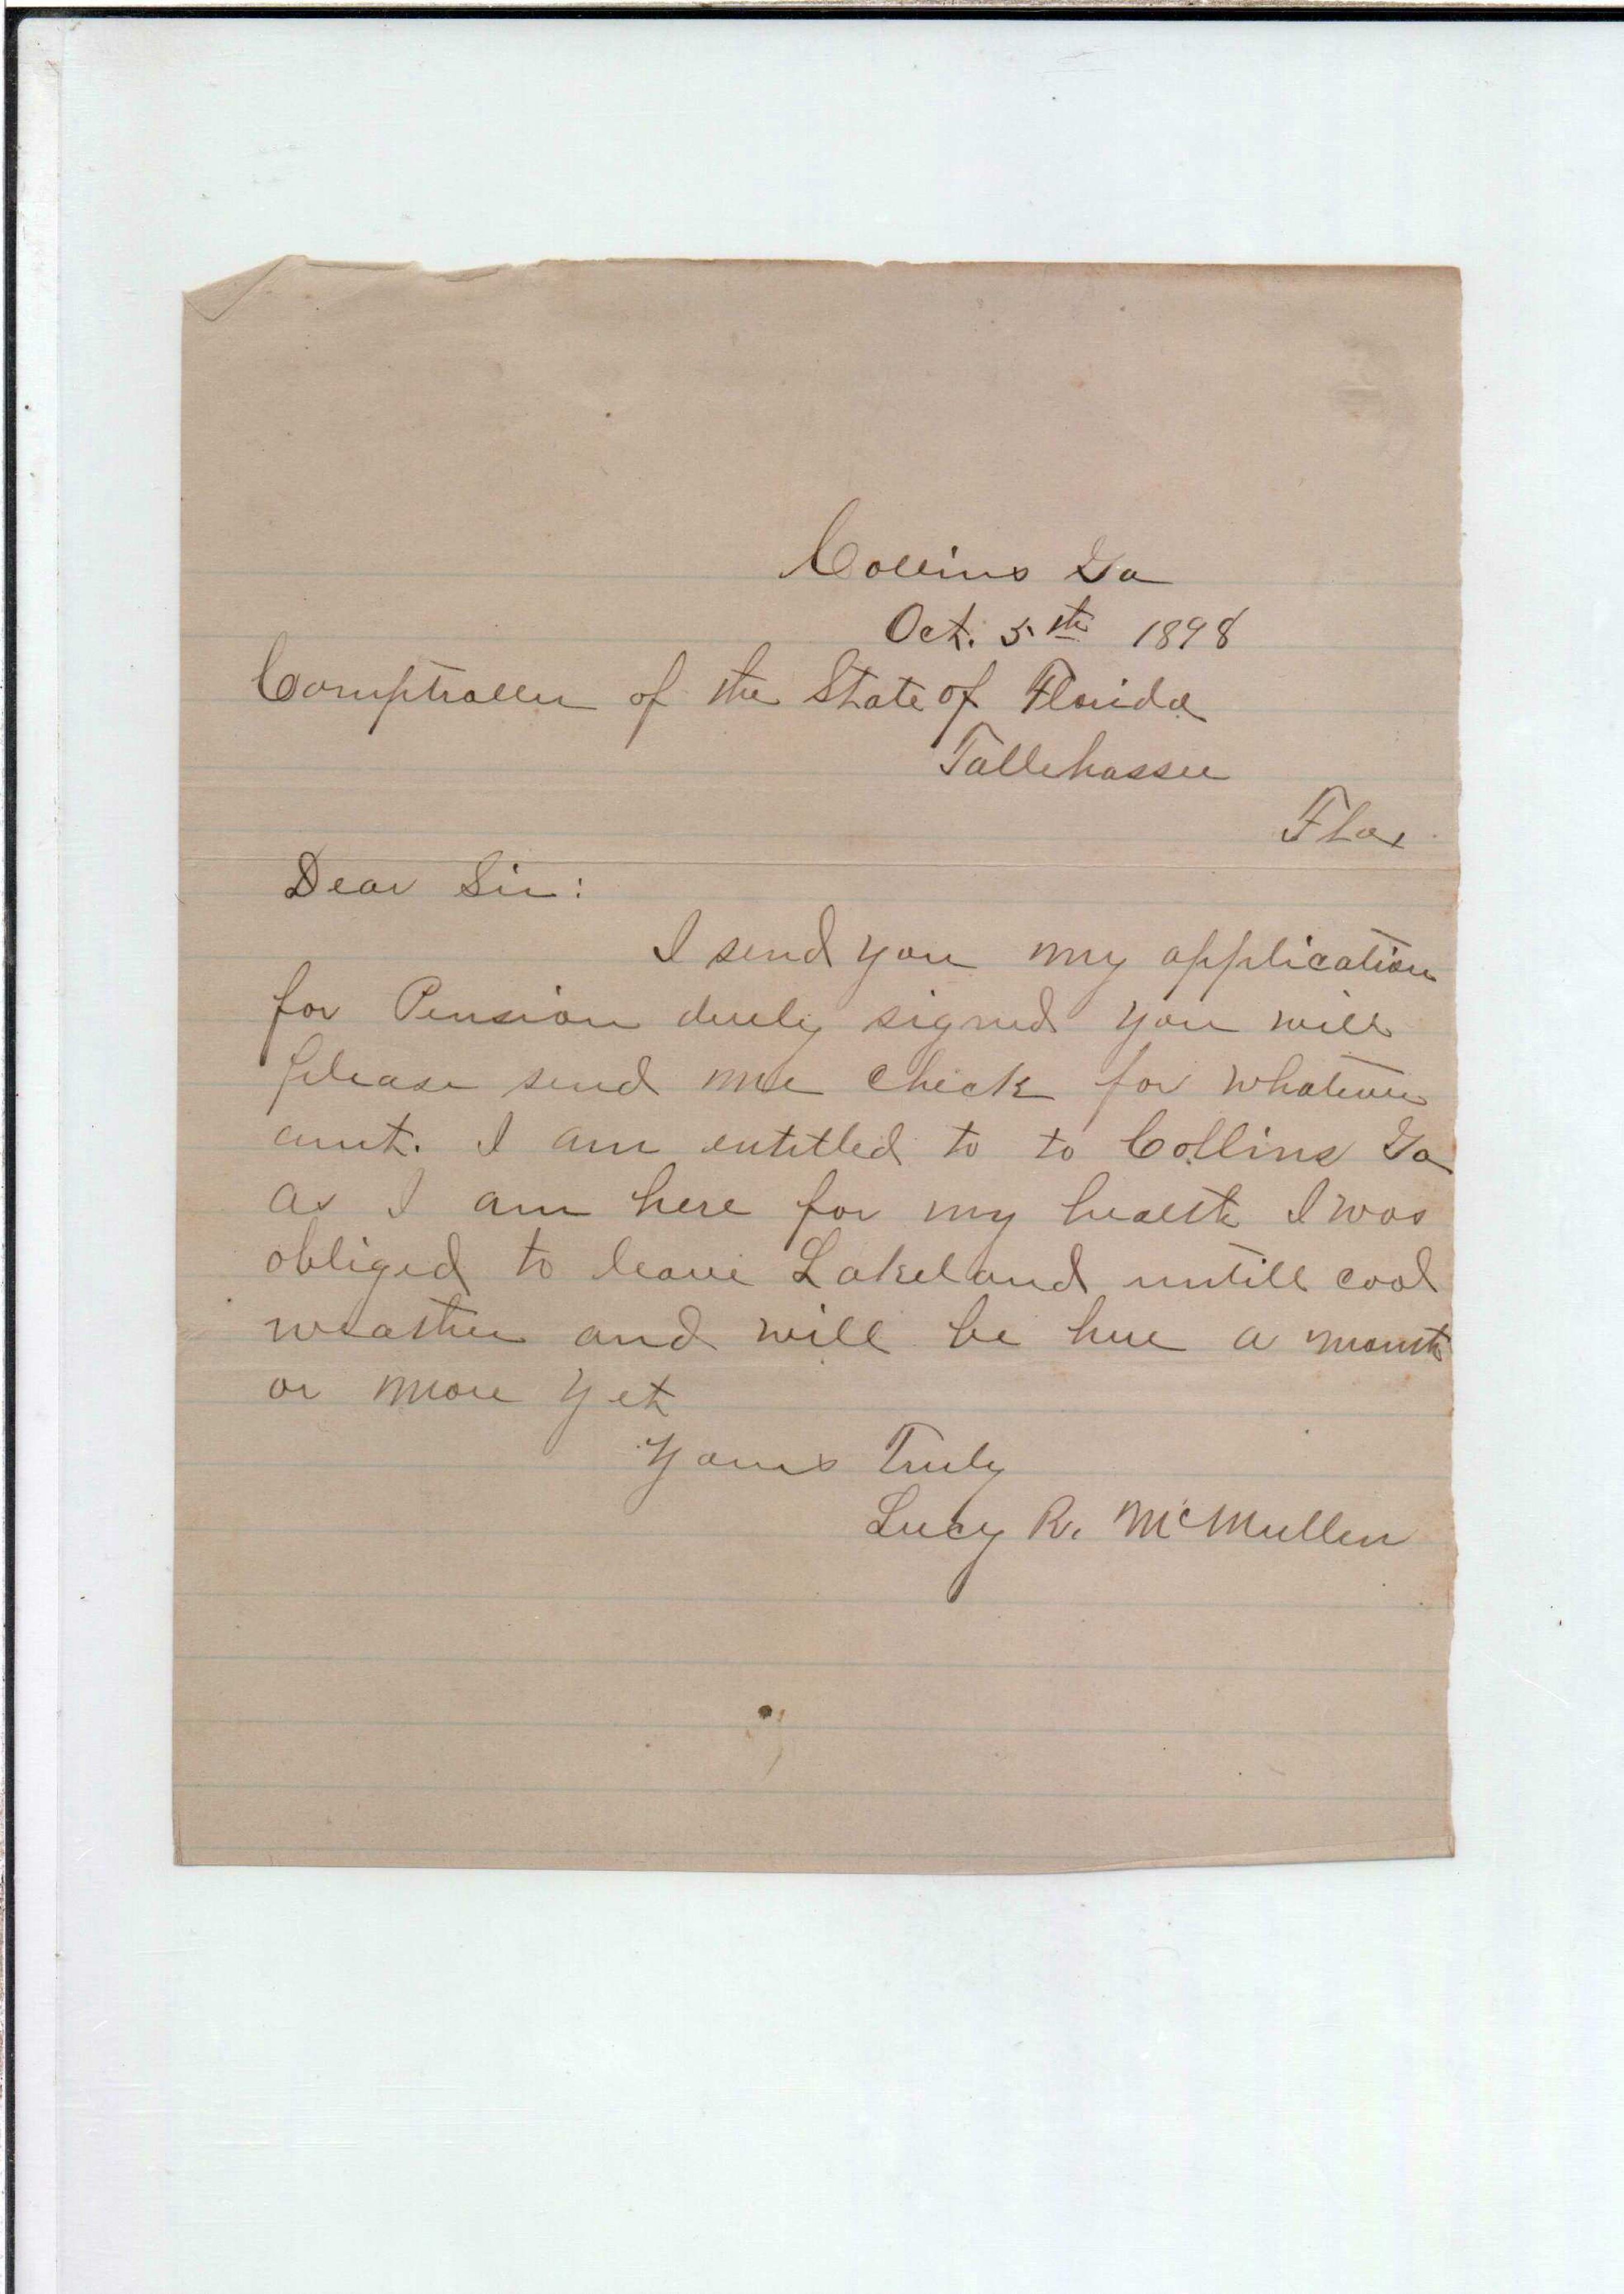 Collins Ga
Oct. 5th 1898
Comptroller of the State of Florida
Tallehassee
Fla
Dear Sir:
I send you my application
for Pension duely signed you will
please send me check for whatever
amt. I am entitled to to Collins Ga
as I am here for my health I was
obliged to leave Lakeland untill cool
weather and will be here a month
or more yet
Yours Truly
Lucy R. McMullen